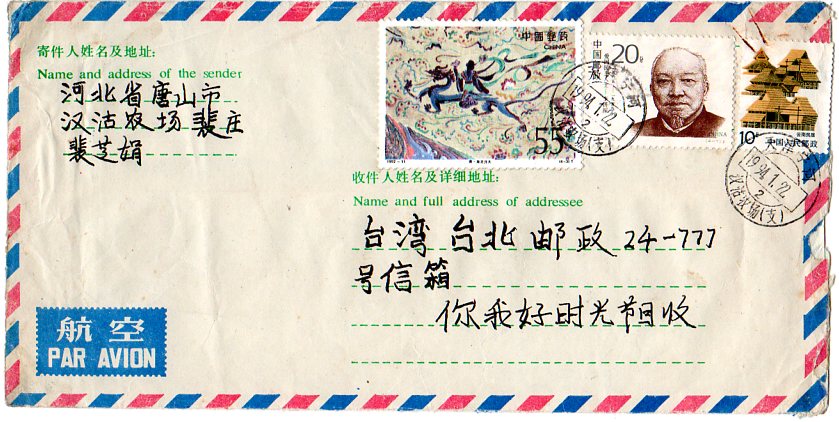 寄件人姓名及地址:
Name and address of the sender
河北省唐山市
汉沽农场裴庄
裴芝娟
中国邮政
CHINA
55分
1992-11
20分
中国邮政
CHINA
10分
中国人民邮政
1994.1.22
2
汉沽农场(支)
1994.1.22
2
汉沽农场(支)
收件人姓名及详细地址:
Name and full address of addressee
台湾台北邮政24-777
号信箱
你我好时光节目收
航空
PAR AVION